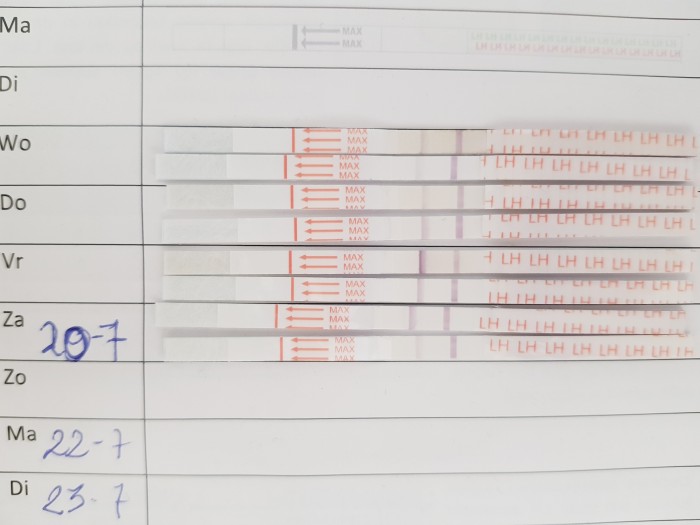 Ma
MAX
MAX
LH LH LH LH LH LH LH LH LH LH LH LH
Di
Wo
MAX
MAX
MAX
LH LH LH LH LH LH LH L
MAX
MAX
MAX
LH LH LH LH LH LH LH L
Do
MAX
MAX
LH LH LH LH LH LH LH
MAX
MAX
MAX
LH LH LH LH LH LH LH
Vr
MAX
MAX
LH LH LH LH LH LH LH LH
MAX
MAX
LH LH LH LH LH LH LH LH
Za 20-7
MAX
MAX
MAX
LH LH LH LH LH LH LH LH
MAX
MAX
MAX
LH LH LH LH LH LH LH LH
Zo
Ma 22-7
Di 23-7